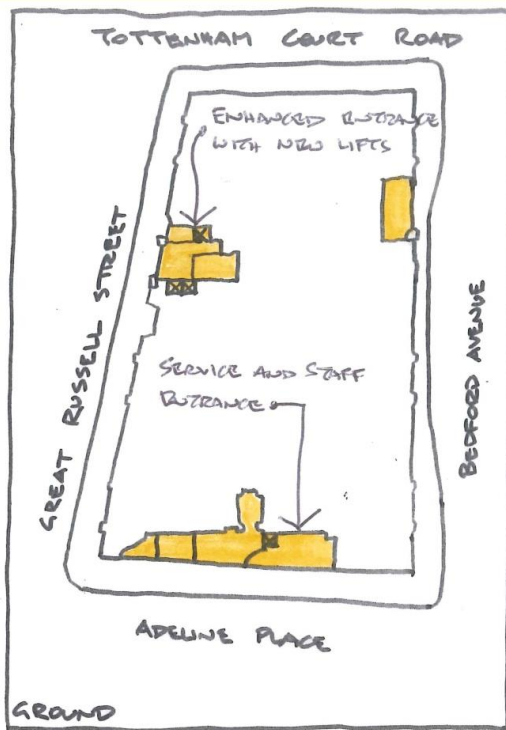 TOTTENHAM COURT ROAD
ENHANCED ENTRANCE
WITH NEW LIFTS
GREAT RUSSELL STREET
BEDFORD AVENUE
SERVICE AND STAFF
ENTRANCE
ADELINE PLACE
GROUND